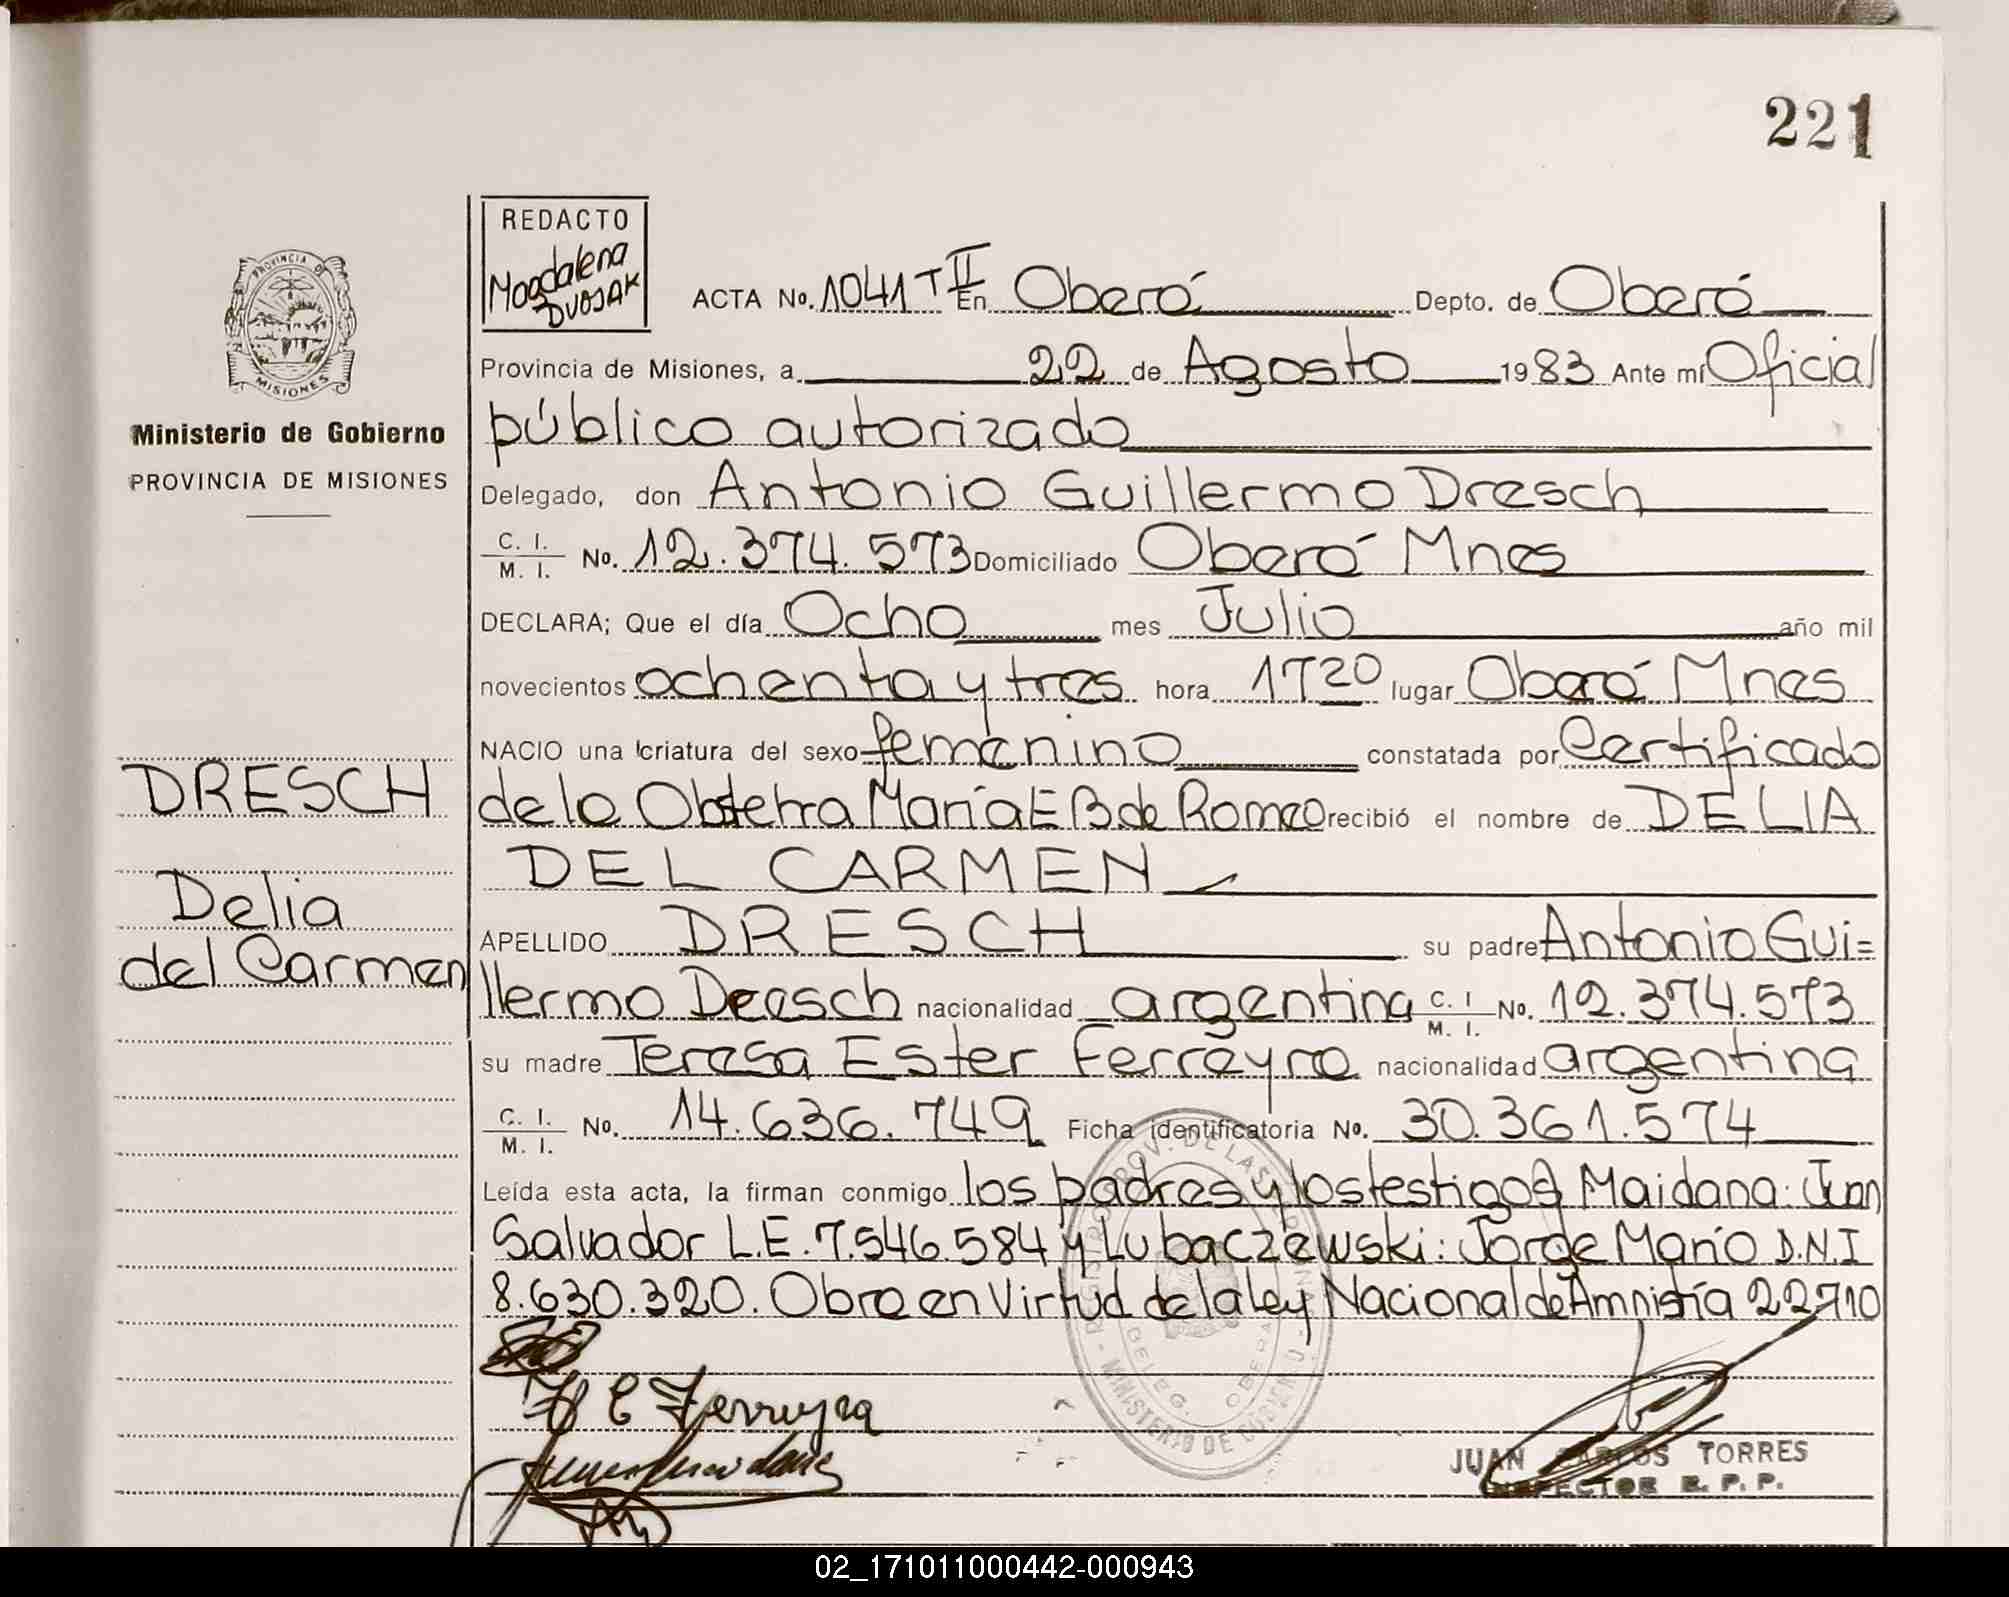 221
REDACTO
Magdalena
DVOJAK
PROVINCIA DE
MISIONES
Ministerio de Gobierno
PROVINCIA DE MISIONES
ACTA No. 1041 T II En Oberá Depto. de Oberá
Provincia de Misiones, a 22 de Agosto 1983 Ante mí Oficial
público autorizado
Delegado, don Antonio Guillermo Dresch
C. I. / M. I. No. 12.374.573 Domiciliado Oberá Mnes
DECLARA; Que el día Ocho mes Julio año mil
novecientos ochenta y tres hora 1720 lugar Oberá Mnes
NACIO una criatura del sexo femenino constatada por Certificado
DRESCH
de la Obstetra María E B de Romeo recibió el nombre de DELIA
DEL CARMEN
Delia
del Carmen
APELLIDO DRESCH su padre Antonio Gui=
llermo Dresch nacionalidad argentina C. I / M. I. No. 12.374.573
su madre Teresa Ester Ferreyra nacionalidad argentina
C. I. / M. I. No. 14.636.749 Ficha identificatoria No. 30.361.574
Leída esta acta, la firman conmigo los padres y los testigos Maidana: Juan
Salvador L.E. 7.546.584 y Lubaczewski: Jorge Mario D.N.I
8.630.320. Obra en Virtud de la ley Nacional de Amnistía 22710
REGISTRO PROV. DE LAS PERSONAS
MINISTERIO DE GOBIERNO
DELEG. OBERA
E Ferreyra
JUAN CARLOS TORRES
INSPECTOR R. P. P.
02_171011000442-000943